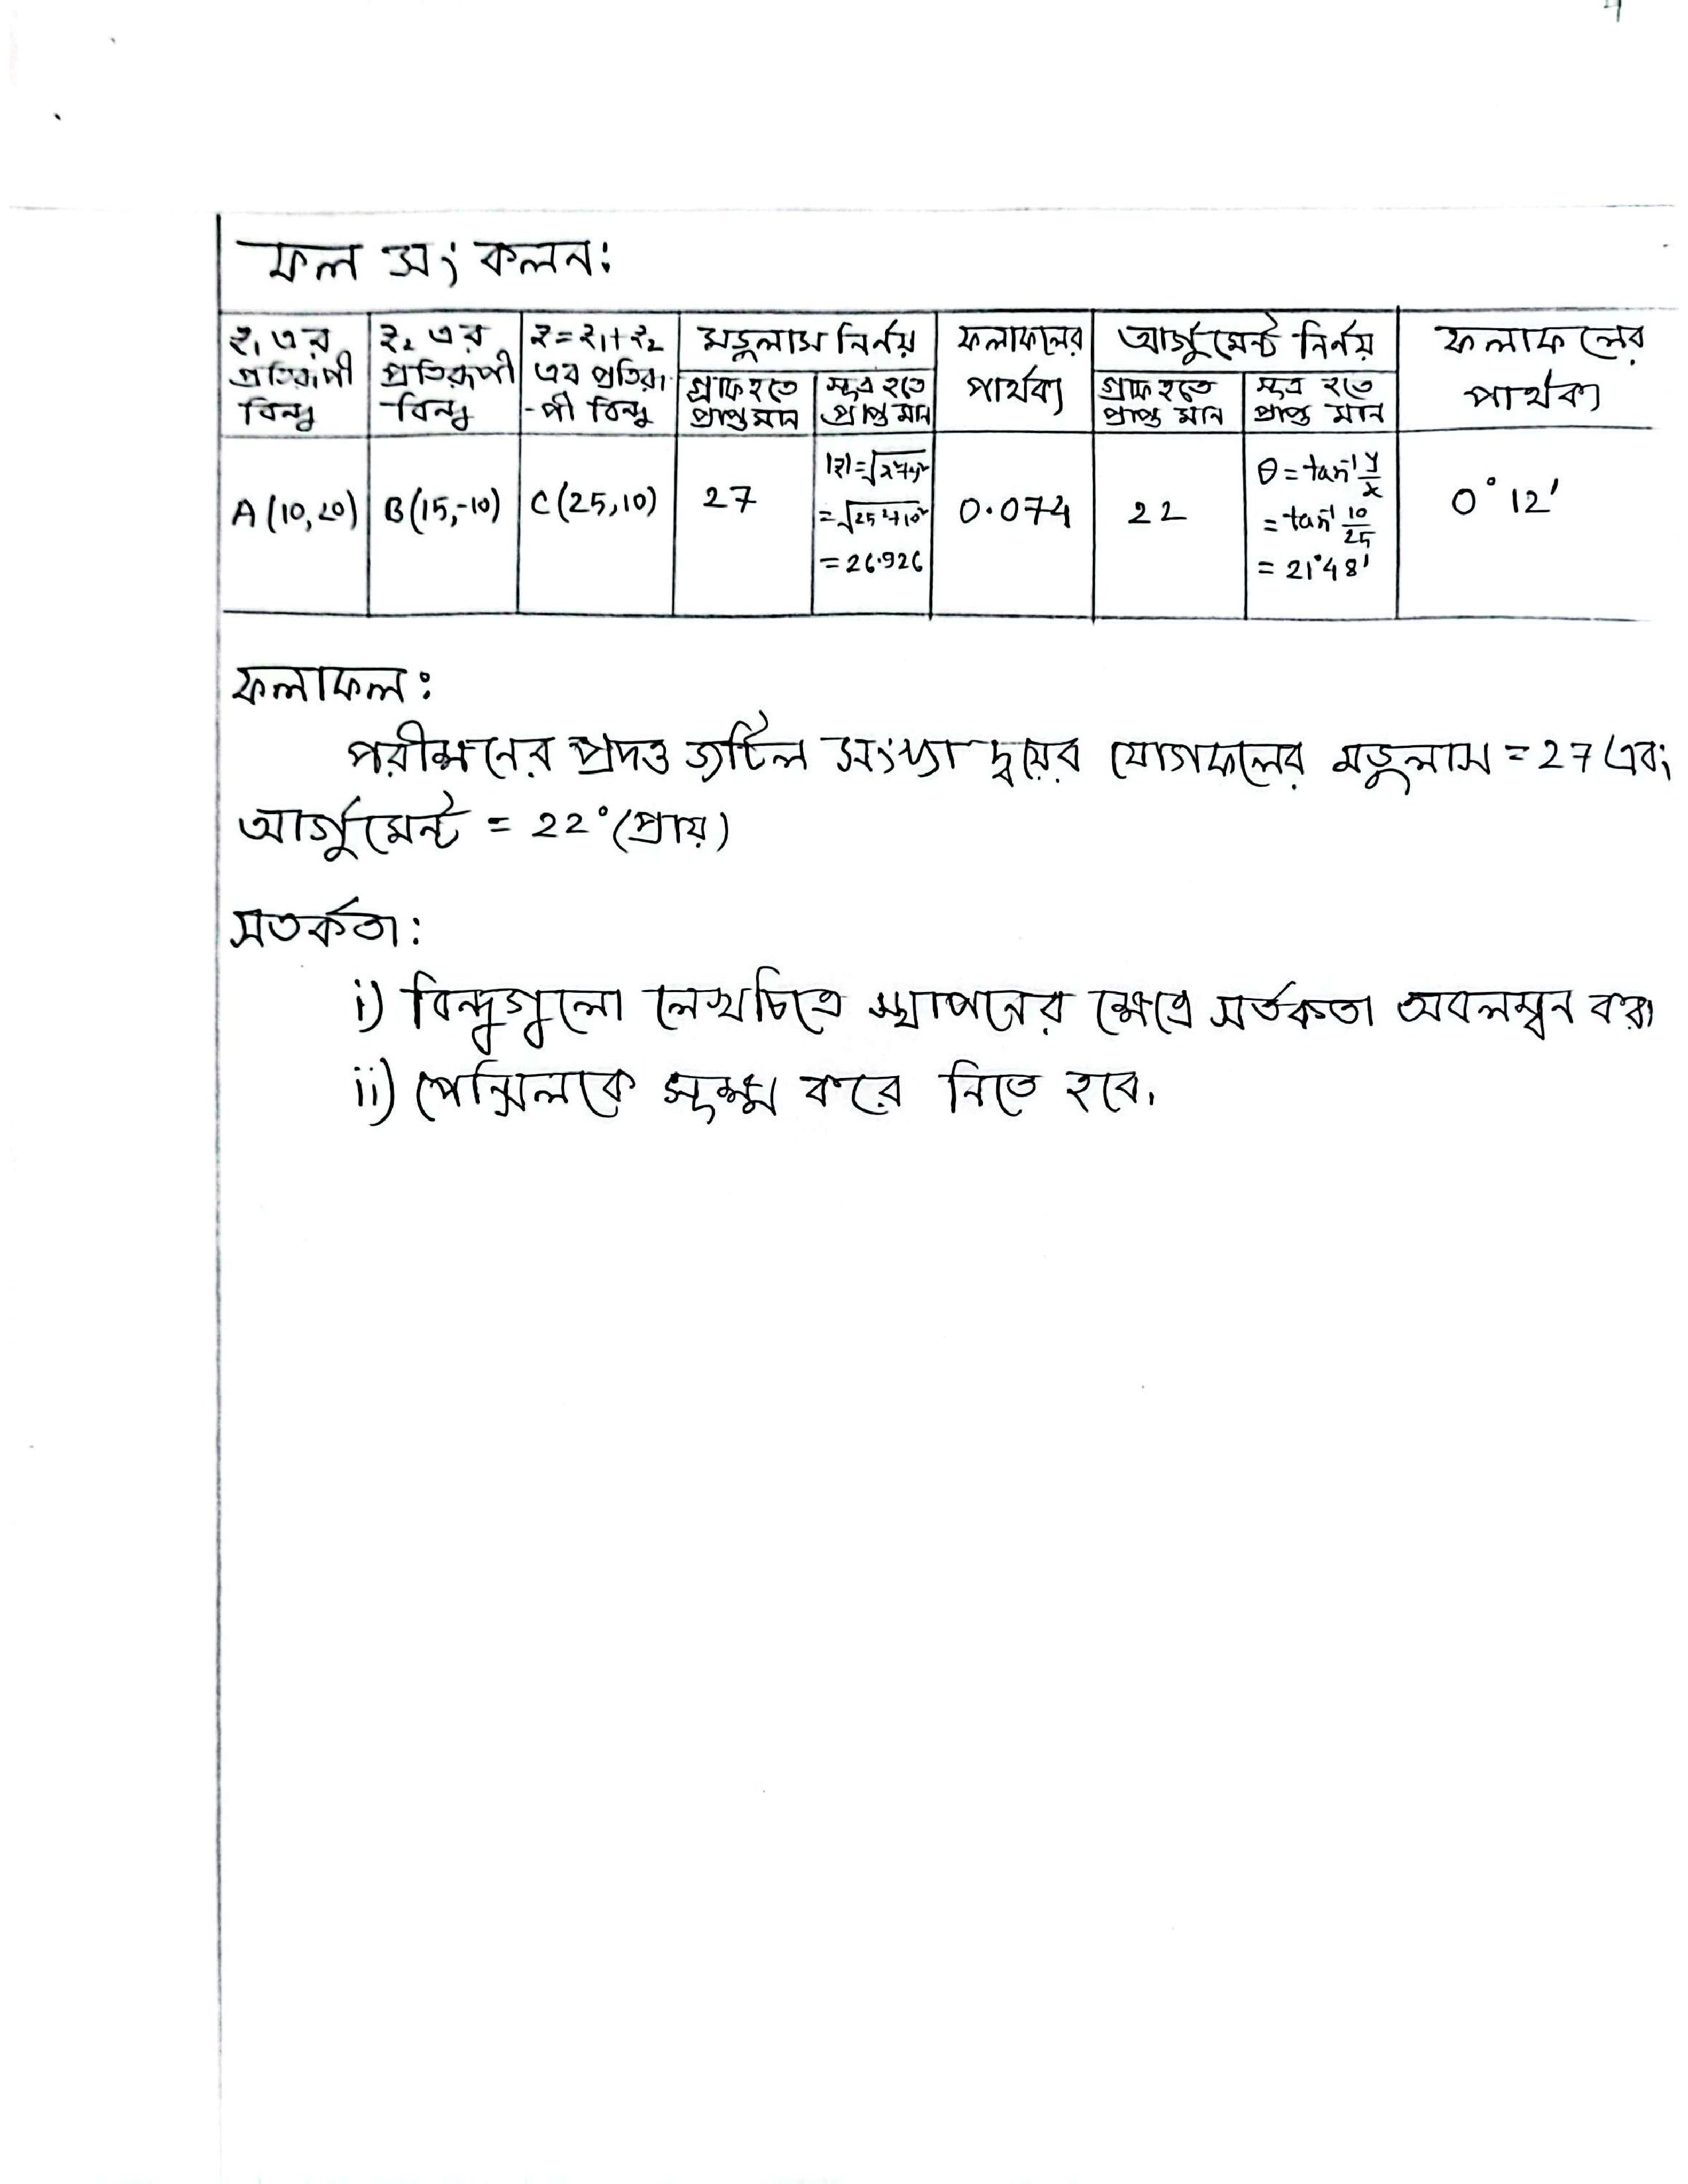 ফল সংকলন:
z₁ এর প্রতিরূপী বিন্দু | z₂ এর প্রতিরূপী বিন্দু | z = z₁ + z₂ এর প্রতিরূ-পী বিন্দু | মডুলাস নির্নয় | ফলাফলের পার্থক্য | আর্গুমেন্ট নির্নয় | ফলাফলের পার্থক্য
গ্রাফ হতে প্রাপ্ত মান | সূত্র হতে প্রাপ্ত মান | গ্রাফ হতে প্রাপ্ত মান | সূত্র হতে প্রাপ্ত মান
A(10,20) | B(15,-10) | C(25,10) | 27 | |z| = √x²+y² = √25²+10² = 26.926 | 0.074 | 22 | θ = tan⁻¹ y/x = tan⁻¹ 10/25 = 21°48' | 0° 12'
ফলাফল:
পরীক্ষনের প্রদত্ত জটিল সংখ্যা দ্বয়ের যোগফলের মডুলাস = 27 এবং
আর্গুমেন্ট = 22° (প্রায়)
সতর্কতা:
i) বিন্দুগুলো লেখচিত্রে স্থাপনের ক্ষেত্রে সর্তকতা অবলম্বন করা
ii) পেন্সিলকে সূক্ষ্ম করে নিতে হবে।